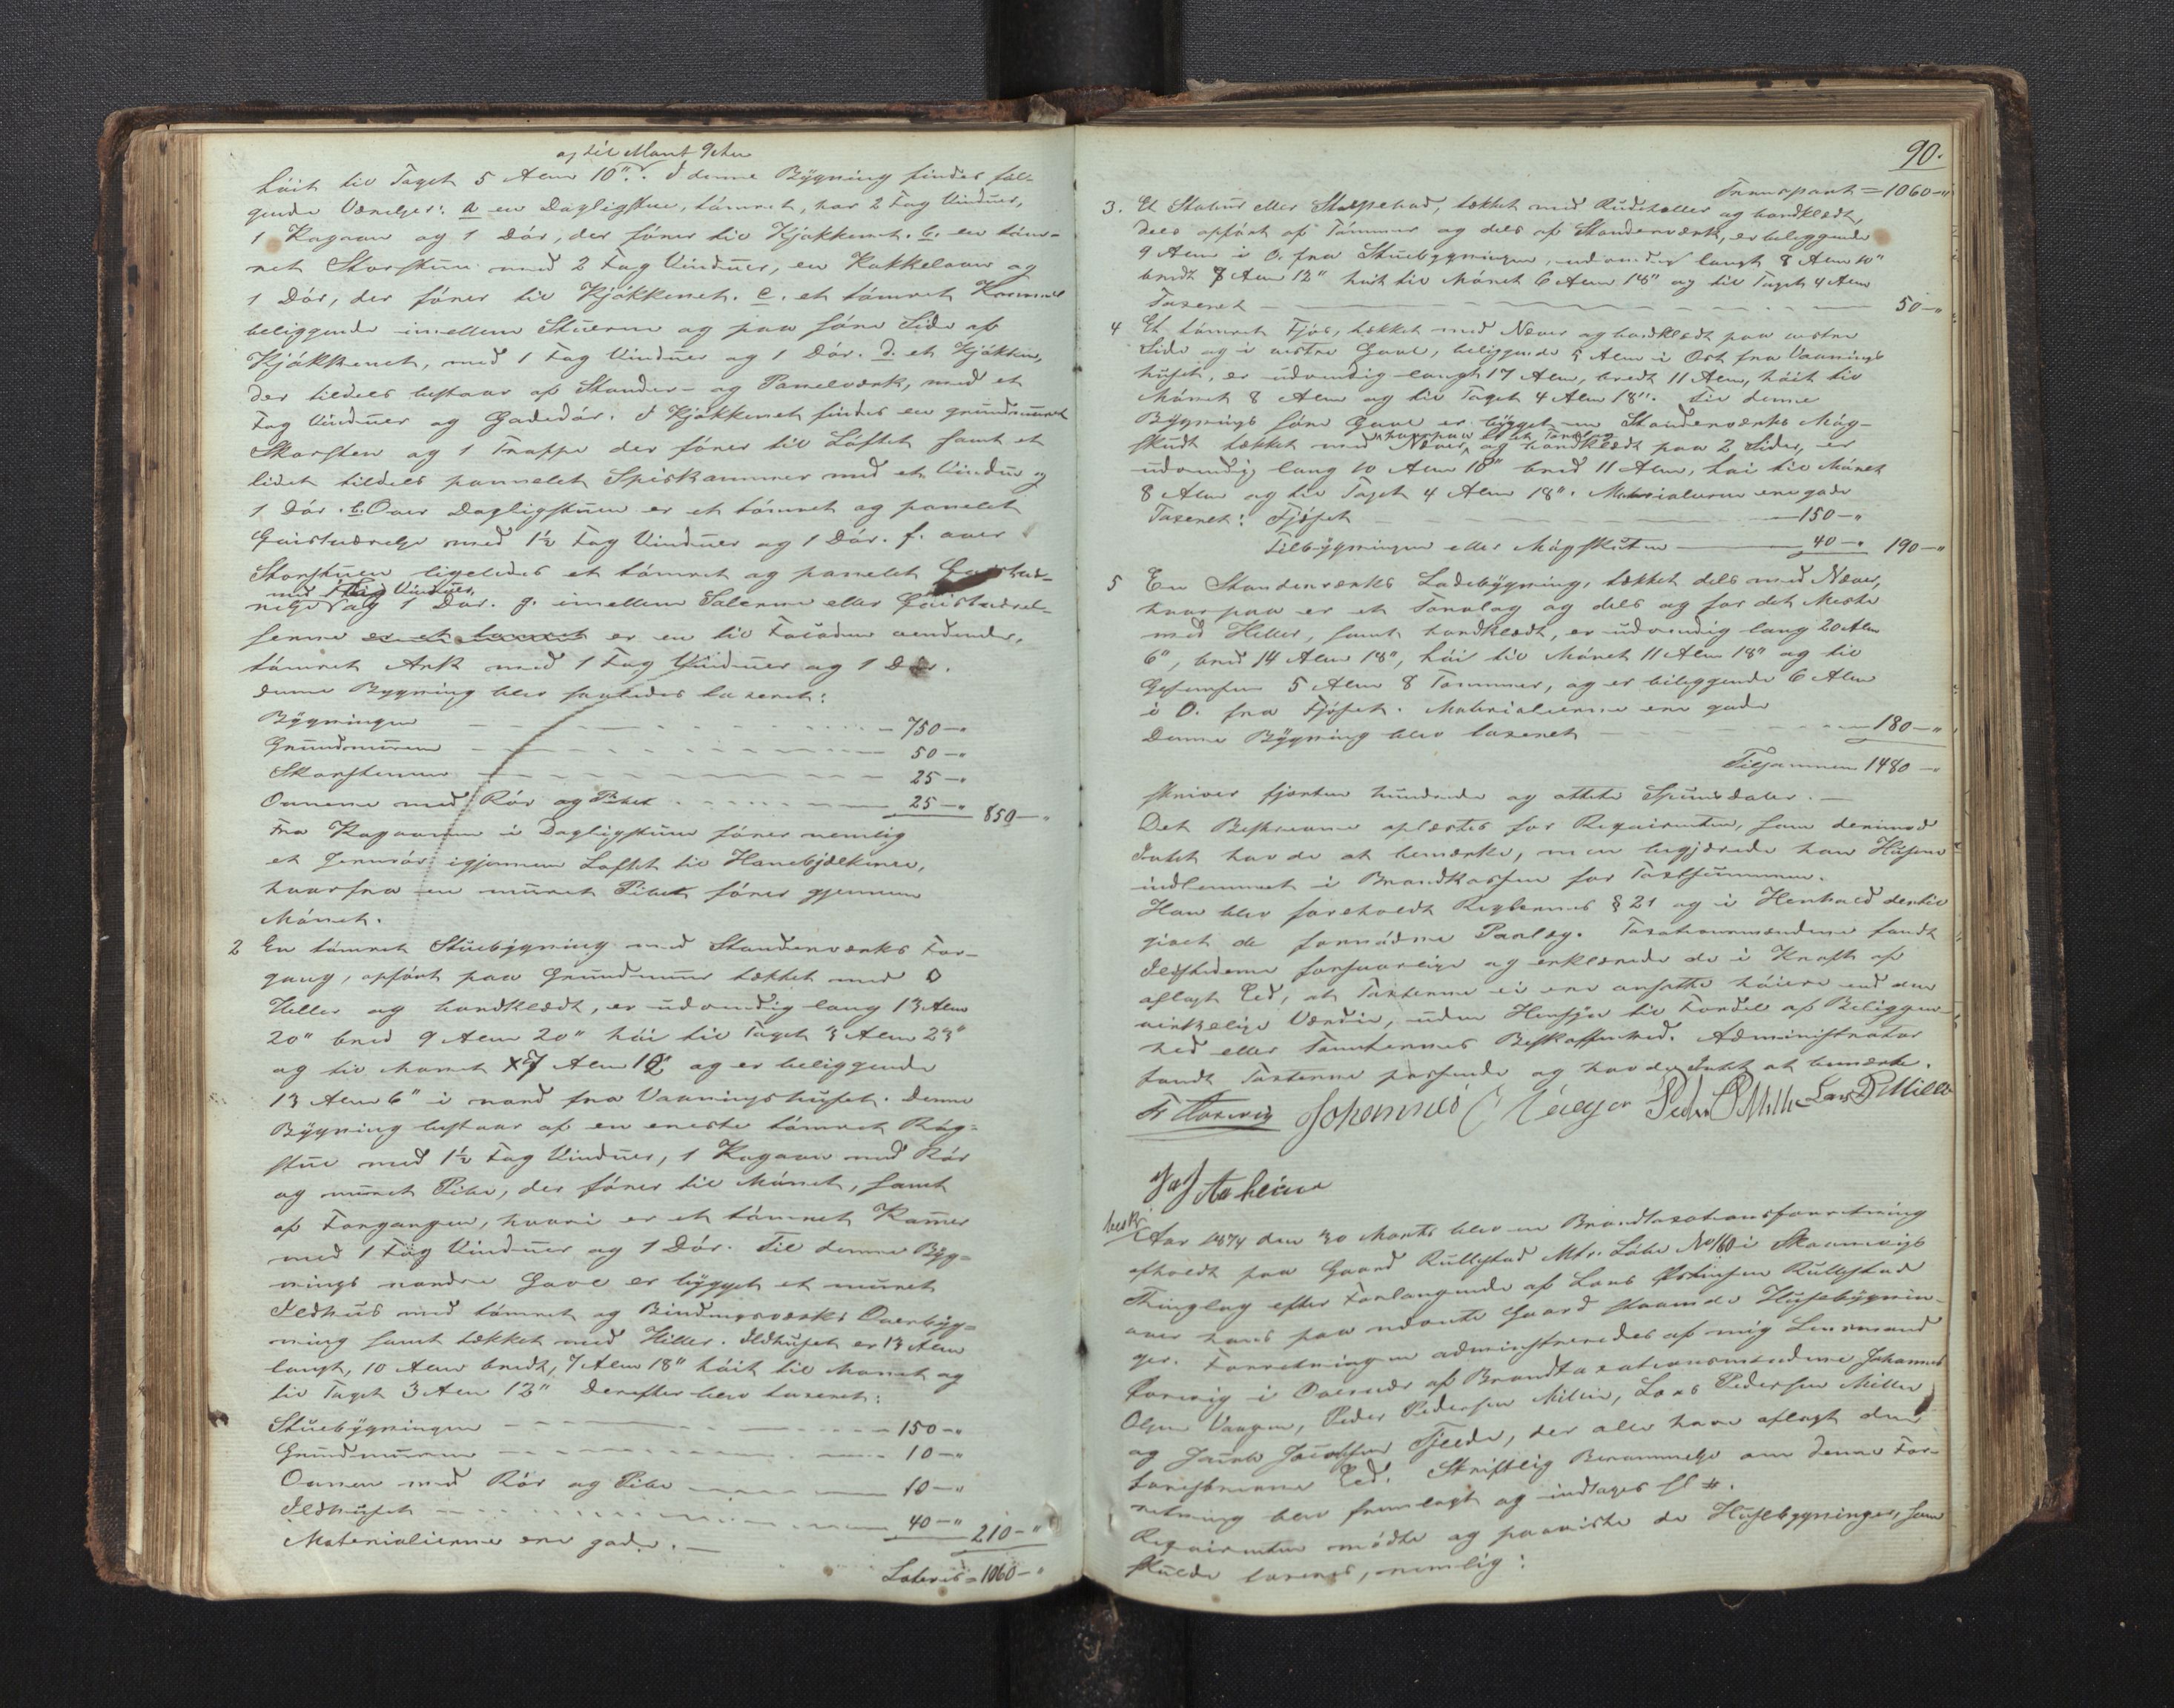 og til Mønt 9 Alen
höit til Taget 5 Alen 10". I denne Bÿgning findes föl-
gende Værelser: a en Dagligstue, tömret, har 2 Fag Vindüer,
1 Kogovn og 1 Dör, der förer til Kjökkenet. b. en töm-
ret Storstüe med 2 Fag Vindüer, en Kakkelovn og
1 Dör, der förer til Kjökkenet. c. et tömret Kammer
beliggende imellem Stuerne og paa söre Side af
Kjökkenet, med 1 Fag Vindüer og 1 Dör. d. et Kjökken,
der tildels bestaar af Stander- og Panelværk, med et
Fag Vindüer og Gadedör. I Kjökkenet findes en grundmuret
Skorsten og 1 Trappe der förer til Löftet samt et
lidet tildels pannelet Spiskammer med et Vindu og
1 Dör. e. Over Dagligstuen er et tömret og panelet
Gjæsteværelse med 1½ Fag Vindüer og 1 Dör. f. over
Storstüen ligeledes et tömret og panelet Gjæstevæ-
med 1 Fag Vindüer
relse og 1 Dör. g. imellem Salerne eller Gjæsteværel-
serne er et tömret er en til Facaden vendende,
tömret Ark med 1 Fag Vindüer og 1 Dör.
Denne Bygning blev saaledes taxeret:
Bÿgningen 750 - "
Grundmüren 50 - "
Skorstenen 25 - "
Ovnene med Rör og Pibe 25 - " 850 - "
Fra Kogovnen i Dagligstuen förer nemlig
et Jernrör igjennem Loftet til Hanebjælkerne,
hvorfra en müret Pibe förer gjennem
Mönet.
2 En tömret Stüebÿgning med Standerværks For-
gang, opfört paa Grundmuur tækket med
Heller og bordklædt, er udvendig lang 13 Alen
20" bred 9 Alen 20" höi til Taget 3 Alen 23"
og til Mönet 7 Alen 12" og er beliggende
13 Alen 6" i nord fra Vaaningshuset. Denne
Bÿgning bestaar af en eneste tömret Rög-
stue med 1½ Fag Vindüer, 1 Kogovn med Rör
og muret Pibe, der förer til Mönet, samt
af Forgangen, hvori er et tömret Kamer
med 1 Fag Vindüer og 1 Dör. Til denne Bÿg-
nings nordre Gavl er bÿgget et muret
Ildhus med tömret og Bindingsværks Overbÿg-
ning samt tækket med Heller. Ildhuset er 13 Alen
langt, 10 Alen bredt, 7 Alen 18" höit til Mönet og
til Taget 3 Alen 12" Derefter blev taxeret:
Stüebÿgningen 150 - "
Grundmuren 10 - "
Ovnen med Rör og Pibe 10 - "
Ildhuset 40 - " 210 - "
Materialierne ere gode.
Lateris = 1060 - "
90.
Transport = 1060 - "
3. Et Stabur eller Stolpebod, tækket med Rudeheller og bordklædt,
dels opfört af Tömmer og dels af Standerværk, er beliggende
9 Alen i O. fra Stuebygningen, udvendig langt 8 Alen 10"
bredt 7 Alen 12" höit til Mönet 6 Alen 18" og til Taget 4 Alen
Taxeret 50 - "
4 Et tömret Fjös, tækket med Næver og bordklædt paa vestre
Side og i vestre Gavl, beliggende 5 Alen i Ost fra Vaanings
huset, er udvendig langt 17 Alen, bredt 11 Alen, höit til
Mönet 8 Alen og til Taget 4 Alen 18". Til denne
Bÿgnings söre Gavl er bÿgget en Standerværks Mög-
hvorpaa er et Torvlag
skudt tækket med Næver, og bordklædt paa 2 Sider, er
udvendig lang 10 Alen 18" bred 11 Alen, höi til Mönet
8 Alen og til Taget 4 Alen 18". Materialierne ere gode
Taxeret: Fjöset 150 - "
Tilbÿgningen eller Mögskuten 40 - " 190 - "
5 En Standerværks Ladebÿgning, tækket dels med Næver,
hvorpaa er et Torvlag og dels og for det Meste
med Heller, samt bordklædt, er udvendig lang 20 Alen
6", bred 14 Alen 18", höi til Mönet 11 Alen 18" og til
Gesimsen 5 Alen 8 Tommer, og er beliggende 6 Alen
i O. fra Fjöset. Materialierne ere gode
Denne Bÿgning blev taxeret 180 - "
Tilsammen 1480 - "
skriver fjorten hundrede og otteti Speciedaler. -
Det Beskrevne oplæstes for Reqvirenten, som derimod
Intet havde at bemærke, men begjærede han Husene
indlemmet i Brandkassen for Taxtsummen.
Han blev foreholdt Reglernes § 21 og i Henhold dertil
givet de fornödne Paalæg. Taxationsmændene fandt
Ildstederne forsvarlige og erklærede de i Kraft af
aflagt Ed, at Taxterne ei ere ansatte höiere end den
virkelige Værdie, uden Hensyn til Fordel af Beliggen-
hed eller Tomternes Beskaffenhed. Administrator
fandt Taxterne passende og havde Intet at bemærke.
Johannes O Vangen Peder P Mille Lars P Mille
beskr.
Aar 1874 den 30 Marts blev en Brandtaxationsforretning
afholdt paa Gaard Rullestad Mtr. Löbe No 160 i Skaanevigs
Thinglag efter Forlangende af Lars Rullestad
over hans paa nævnte Gaard staaende Husebÿgnin-
ger. Forretningen administreredes af mig Lensmand
i Overvær af Brandtaxationsmændene Johannes
Olsen Vangen, Peder Pedersen Mille, Lars Pedersen Mille
og Jacob Jacobsen Fjelde, der alle have aflagt den
Ed. Skriftlig Berammelse om denne For-
retning blev fremlagt og indtages sl #.
Reqvirenten mödte og paaviste de Husebygninger, som
skulde taxeres, nemlig: